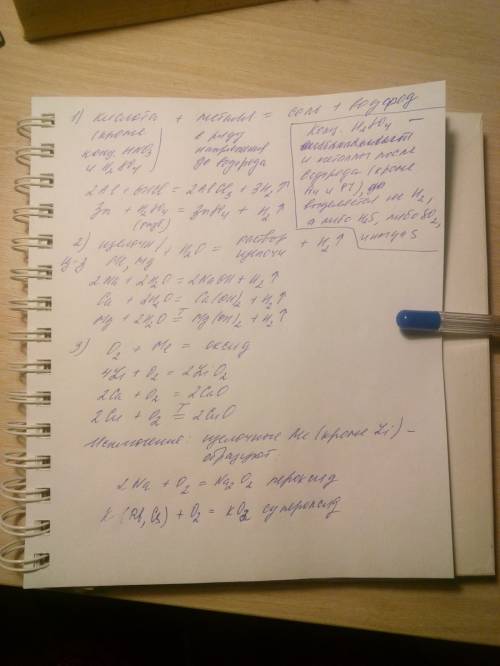 1) кислота + металл = соль + водород
(кроме
конц HNO3
и H2SO4)
в ряду
напряжения
до водорода
конц. H2SO4 –
и металлы после
водорода (кроме
Au и Pt),
выделяется не H2,
а либо H2S, либо SO2,
иногда S
2Al + 6HCl = 2AlCl3 + 3H2↑
Zn + H2SO4 = ZnSO4 + H2↑
2) щелочн + H2O = раствор щелочи + H2↑
Me, Mg
2Na + 2H2O = 2NaOH + H2↑
Ca + 2H2O = Ca(OH)2 + H2↑
Mg + 2H2O T= Mg(OH)2 + H2↑
3) O2 + Me = оксид
4Li + O2 = 2Li2O
2Ca + O2 = 2CaO
2Cu + O2 T= 2CuO
щелочные Me (кроме Li) –
образуют:
2Na + O2 = Na2O2 пероксид
K (Rb, Cs) + O2 = KO2 супероксид